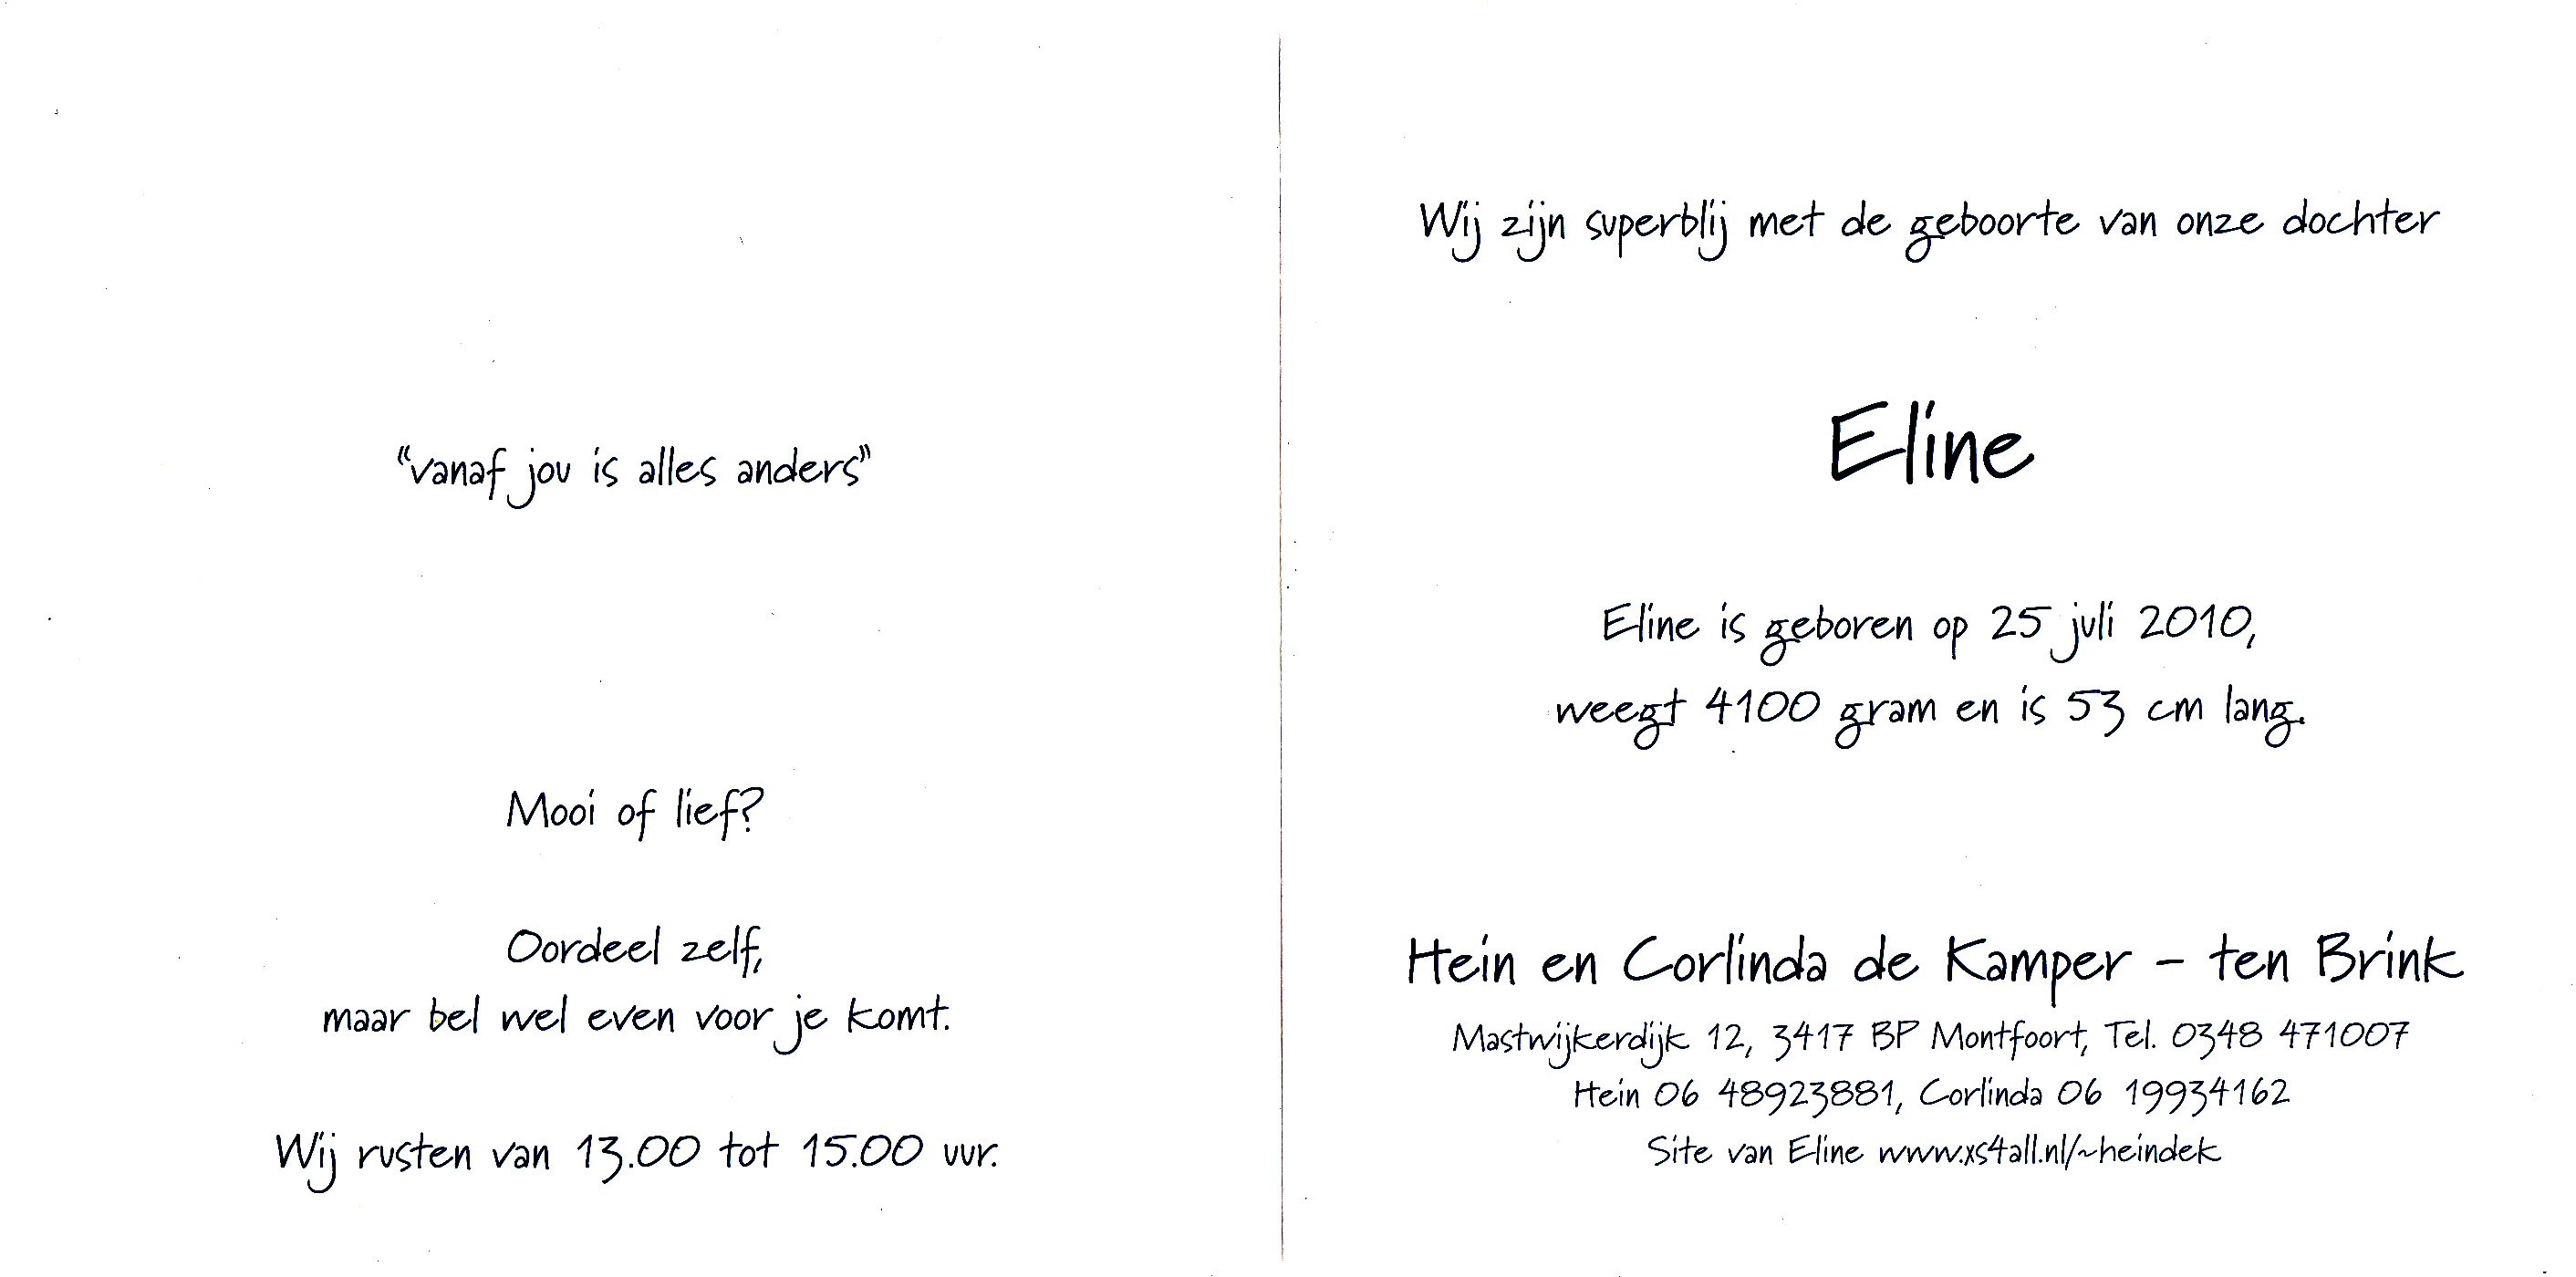 “vanaf jou is alles anders”
Mooi of lief?
Oordeel zelf,
maar bel wel even voor je komt.
Wij rusten van 13.00 tot 15.00 uur.
Wij zijn superblij met de geboorte van onze dochter
Eline
Eline is geboren op 25 juli 2010,
weegt 4100 gram en is 53 cm lang.
Hein en Corlinda de Kamper - ten Brink
Mastwijkerdijk 12, 3417 BP Montfoort, Tel. 0348 471007
Hein 06 48923881, Corlinda 06 19934162
Site van Eline www.xs4all.nl/~heindek